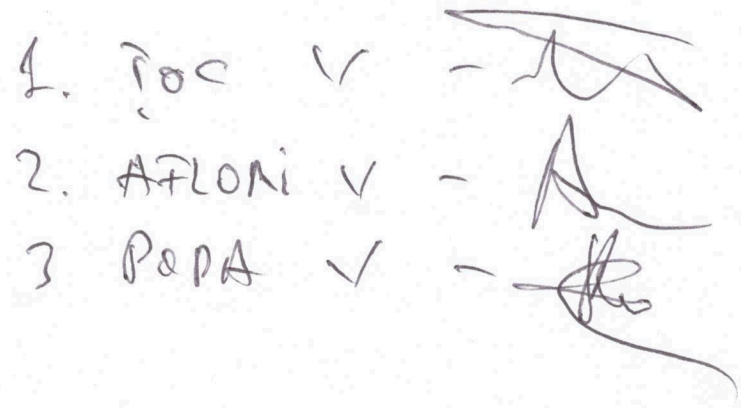 1. ȚOC V -
2. AFLORI V -
3 POPA V -